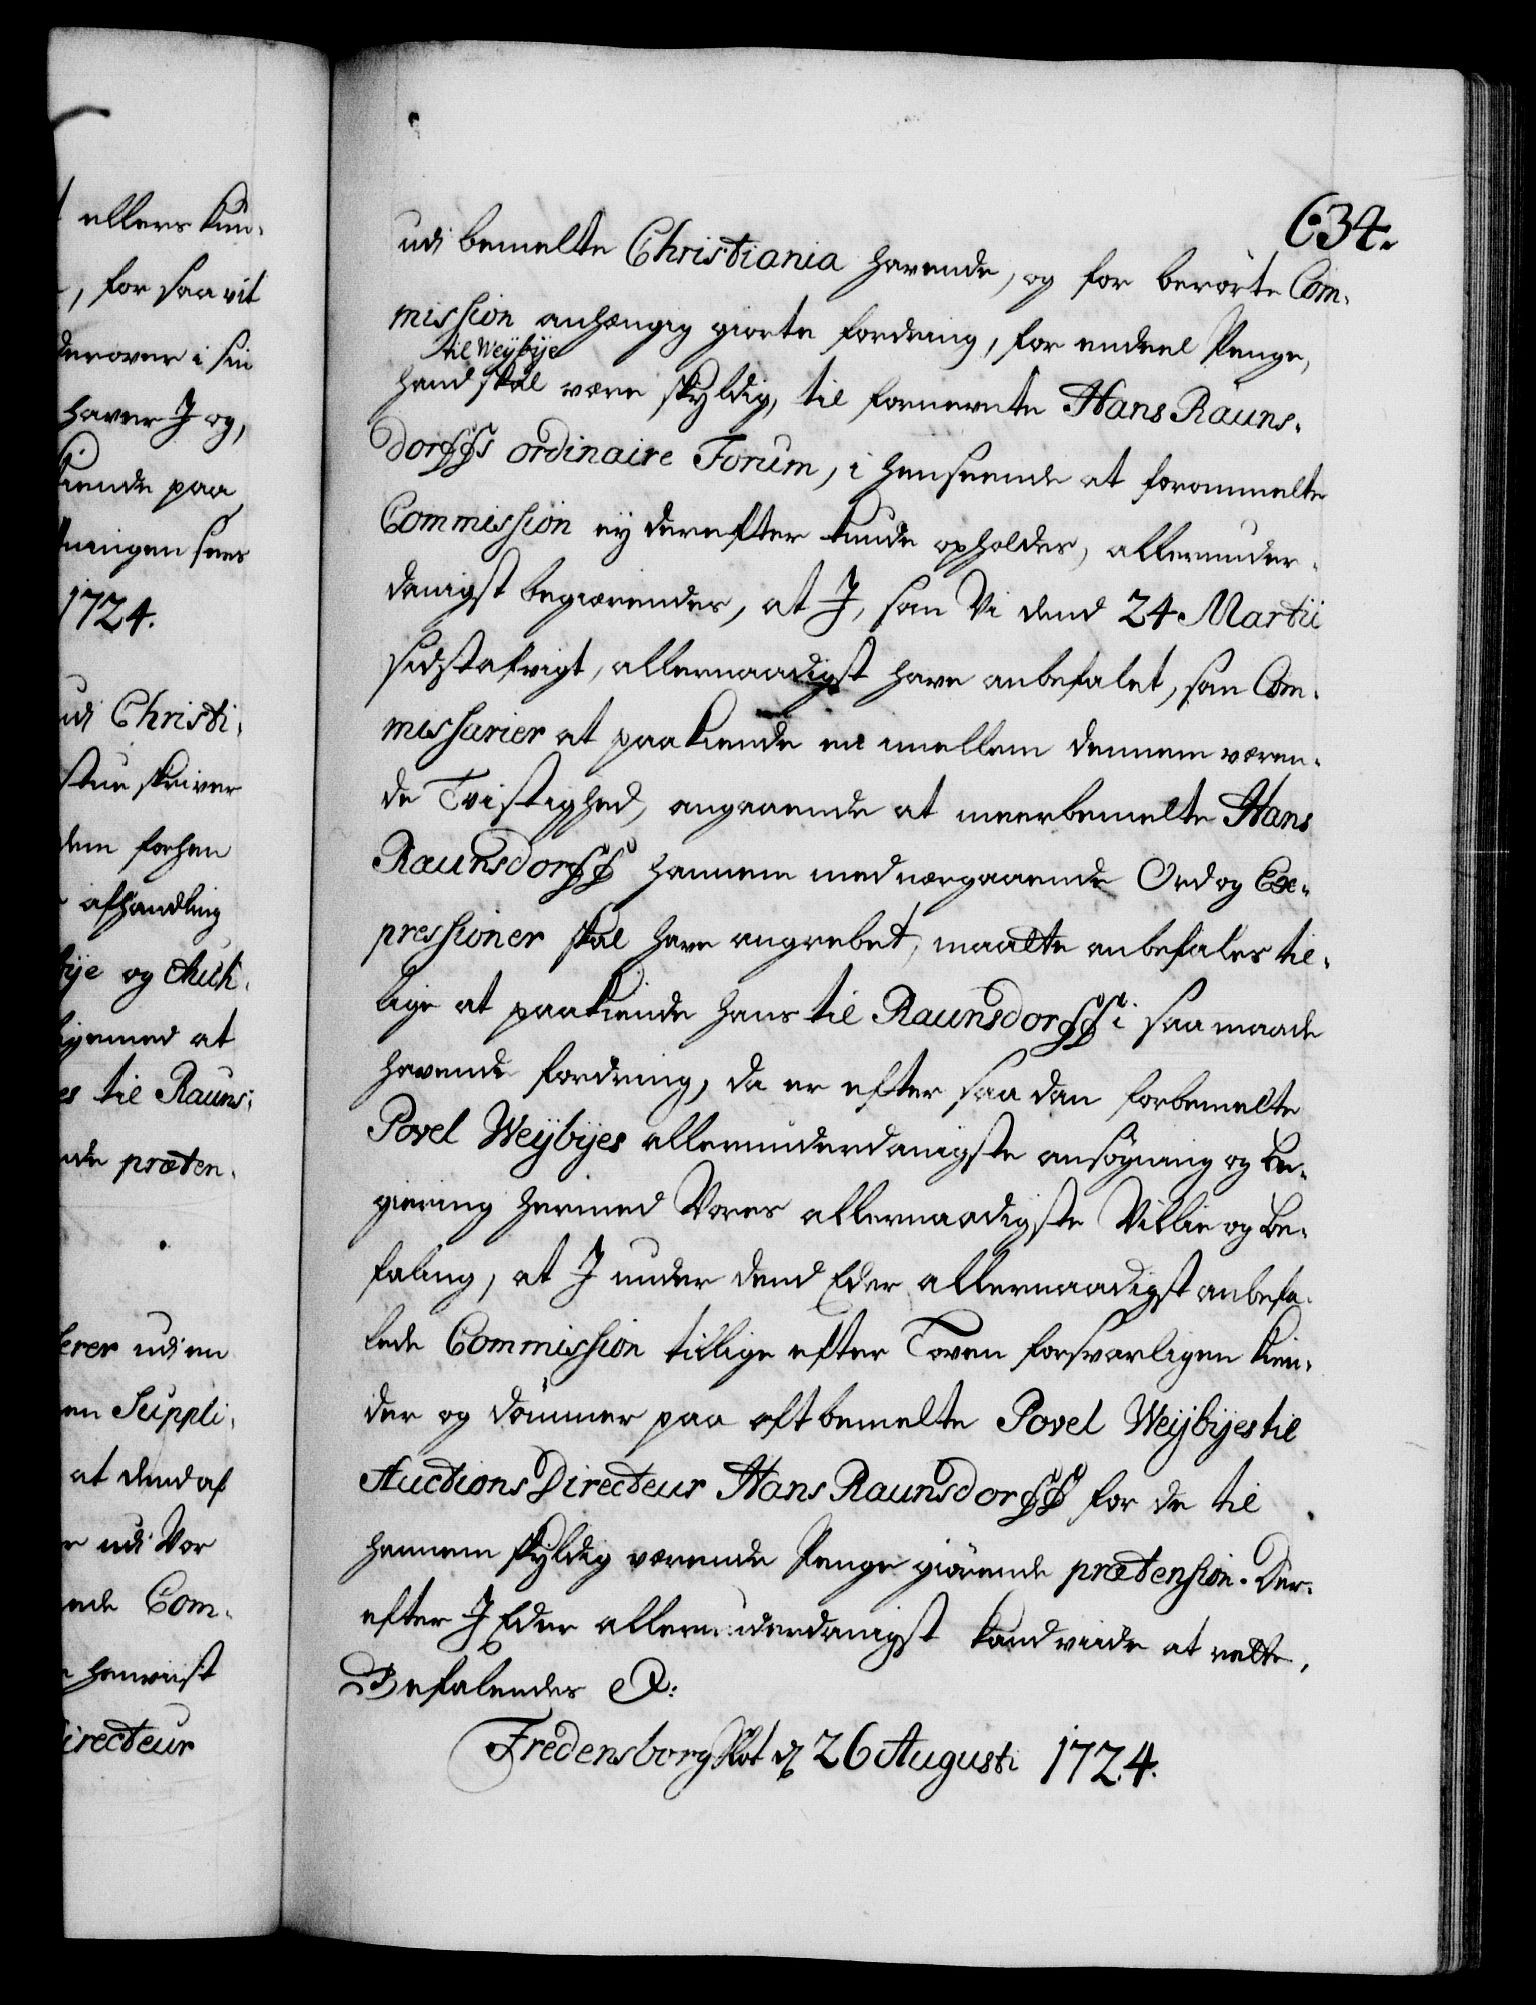 ellers kun-
, for saa vit
derover i sin
haver I og,
kiende paa
ningen sees
1724.
udi Christi-
stue skriver
dem forhen
afhandling
bye og Auct-
hiemed at
es til Rauns-
nde præten-
erer udi en
en Suppli-
at dend af
udi Vor
ede Com-
henviist
irecteur
634.
udi bemelte Christiania havende, og for berørte Com-
mission anhængig giorte fordring, for endeel Penge,
til Weybye
hand skal være skyldig, til fornevnte Hans Rauns-
dorffs ordinaire Forum, i henseende at forommelte
Commission ey derefter kunde opholdes, allerunder-
danigst begiærendes, at I, som Vi dend 24 Martii
sidst afvigt, allernaadigst have anbefalet, som Com-
missarier at paakiende en imellem dennem væren-
de Tvistighed, angaaende at meerbemelte Hans
Raunsdorff hannem med nærgaaende Ord og Ex-
pressioner skal have angrebet, maatte anbefales til-
lige at paakiende hans til Raunsdorff i saa maade
havende fordring, da er efter saadan forbemelte
Povel Weybyes allerunderdanigste ansøgning og be-
giering hermed Vores allernaadigste Villie og be-
faling, at I under dend Eder allernaadigst anbefa-
lede Commission tillige efter Loven forsvarligen kien-
der og dømmer paa oftbemelte Povel Weybyes til
Auctions Directeur Hans Raunsdorff for de til
hannem skyldig værende Penge giørende prætension. Der-
efter I Eder allerunderdanigst kand viide at rette,
Befalendes &:
Fredensborg Slot d 26 Augusti 1724.